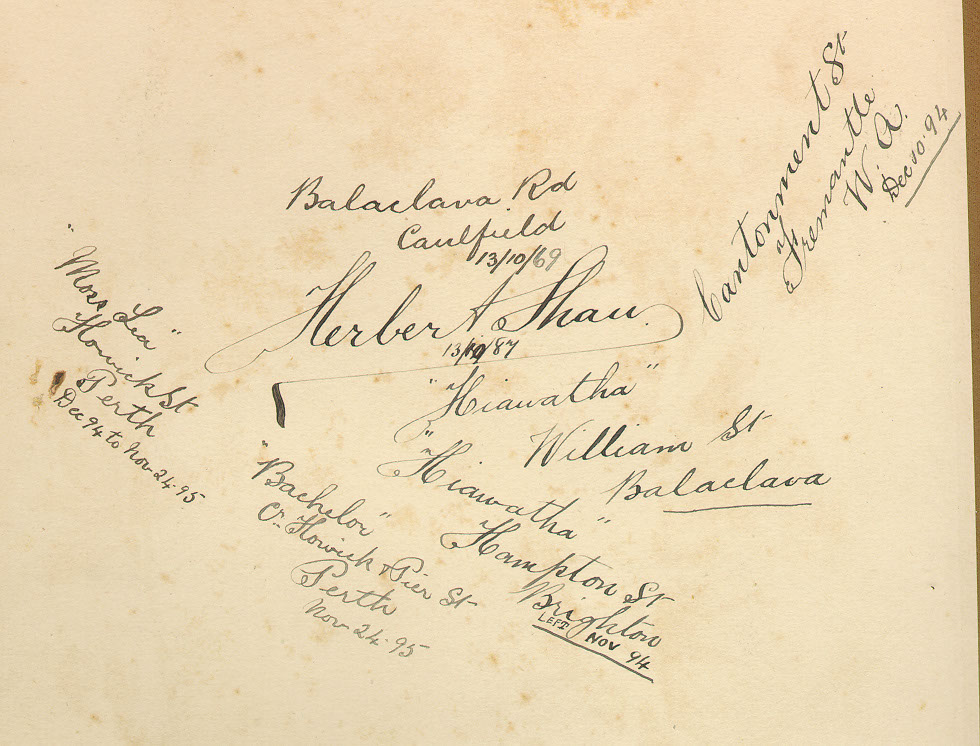 Balaclava Rd
Caulfield
13/10/69
Herbert Shaw.
13/10/87
"Hiawatha"
William St
Balaclava
"Hiawatha"
Hampton St
Brighton
LEFT NOV 94
Cantonment St
Fremantle
W. A.
Dec 10. 94
"Moss Lea"
Howick St
Perth
Dec 94 to Nov. 24. 95
"Bachelor"
Cr. Howick & Pier St
Perth
Nov. 24. 95